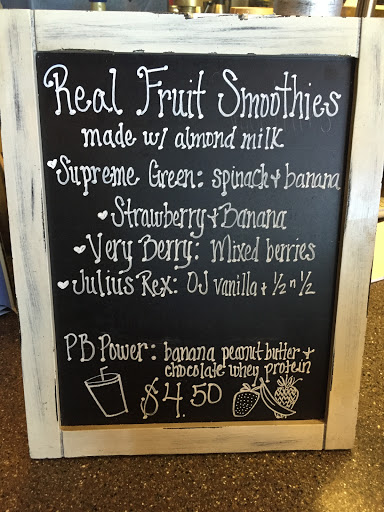 Real Fruit Smoothies
made w/ almond milk
Supreme Green: spinach + banana
Strawberry + Banana
Very Berry: Mixed berries
Julius Rex: OJ vanilla + 1/2 n 1/2
PB Power: banana peanut butter +
chocolate whey protein
$4.50